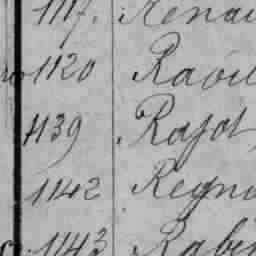 1117. Renau
1120 Raoul
1139 Rajot
1142 Regna
1143 Rabi